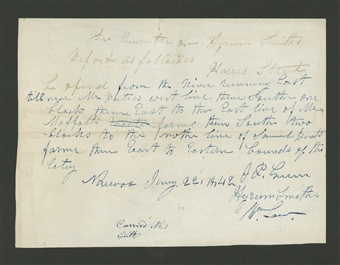 The Committee on Hyrum Smiths
Report as follows
Harris Street
be opened from the River running East
till near Mr west line then South one
block thence East to the East line of Mr
farm then South two
blocks to the north line of Samuel
farm then East to Eastern bounds of the
City
Nauvoo Jany 22 1842
Hyrum Smith
Wm Law
Carried No 1